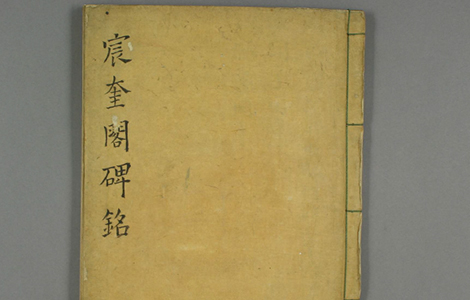 宸奎閣碑銘